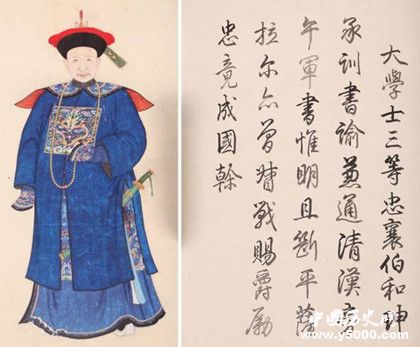 大學士三等忠襄伯和珅
承訓書諭兼通清漢旁
午軍書惟明且斷平薩
拉尔亦曾督戰賜爵勵
忠竟成國幹
中国历史网
www.y5000.com